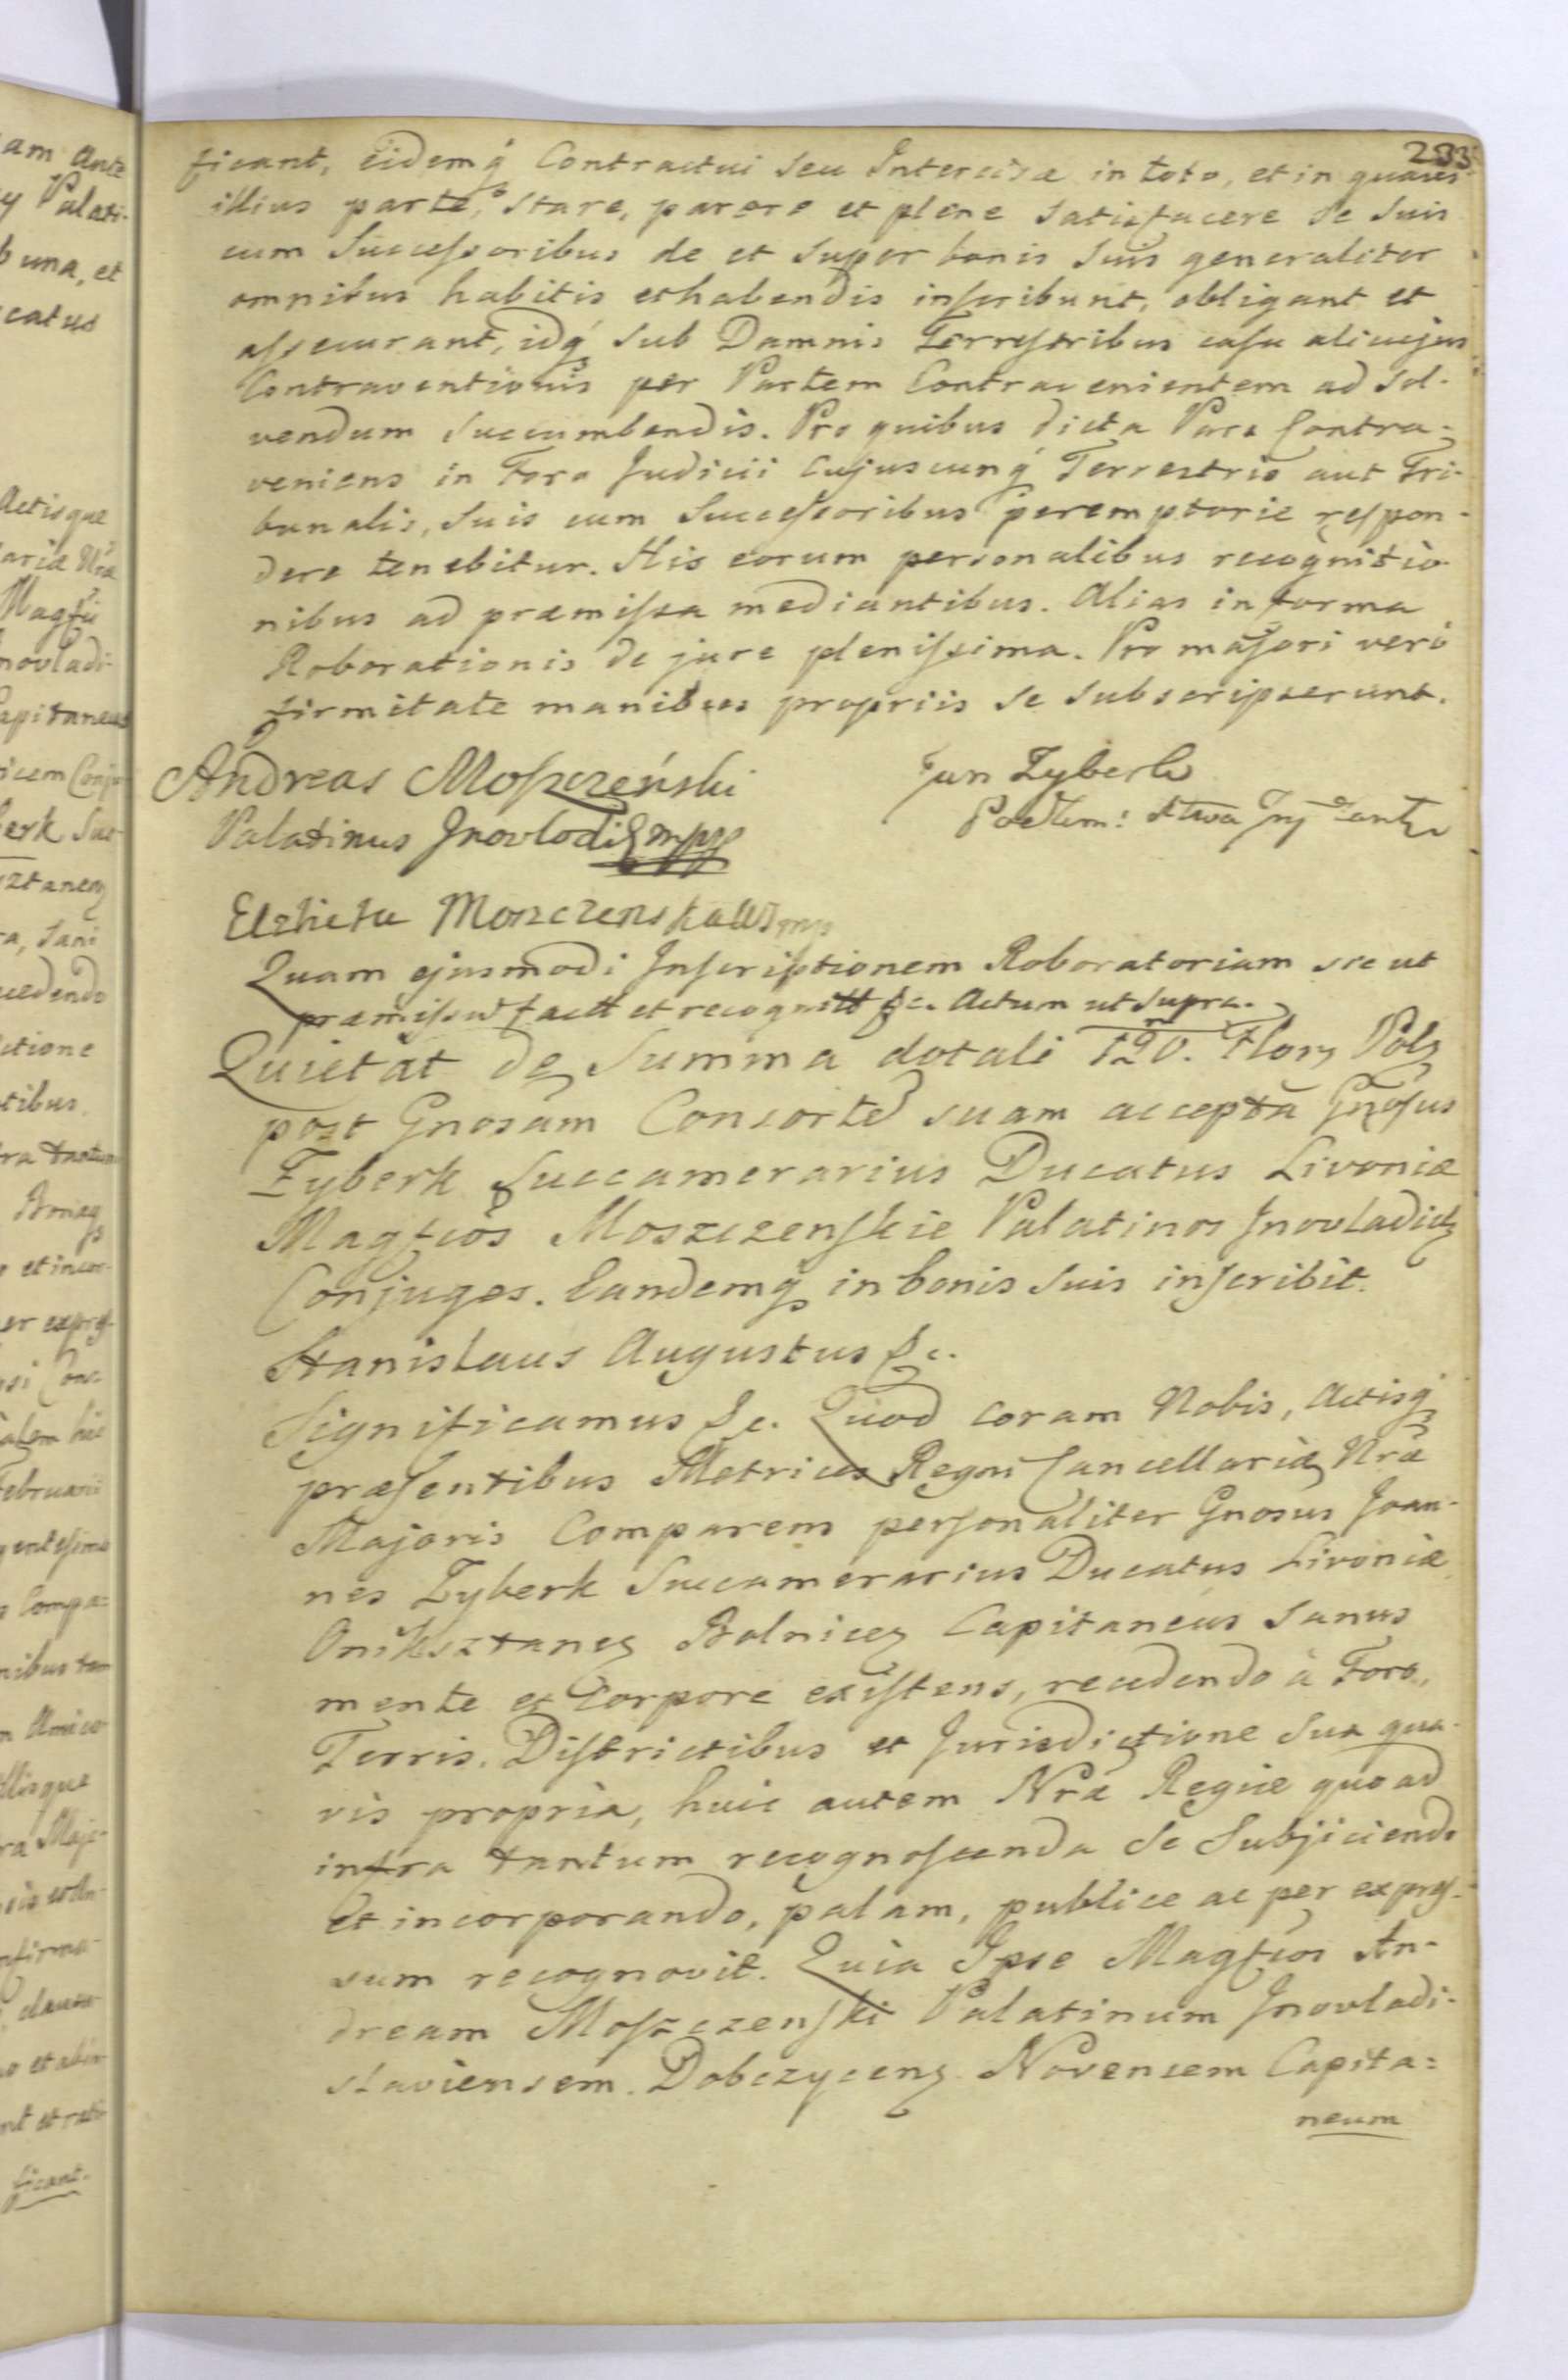 233
ficant, eidemq́ Contractui seu Intercisæ in toto, et in quavis
illius parte, stare, parere et plene satisfacere se suis
cum Successoribus de et super bonis suis generaliter
omnibus habitis et habendis inscribunt, obligant et
assecurant, idq́ sub Damnis Terrestribus casu alicujus
Contraventionis per Partem Contravenientem ad sol-
vendum succumbendis. Pro quibus dicta Pars Contra-
veniens in Foro Judicii cujuscunq́ Terrestris aut Tri-
bunalis, suis cum Successoribus peremptorie respon-
dere tenebitur. His eorum personalibus recognitio-
nibus ad præmissa mediantibus. Alias in forma
Roborationis de jure plenissima. Pro majori verò
firmitate manibus propriis se subscripserunt.
Andreas Moszczeński
Palatinus Jnovlodi mpp
Jan Zyberk
Elzbieta Moszczenska mp
Quam ejusmodi Inscriptionem Roboratoriam sic ut
præmissũ factt et recognitt &c. Actum ut supra.
Quietat de Summa dotali 120. Flor. Pol.
post Gnosam Consortẽ suam acceptâ Gnosus
Zyberk Succamerarius Ducatus Livoniæ
Magfcos Moszczenskie Palatinos Jnovladicẽ
Conjuges. Eandemq́ in bonis suis inscribit.
Stanislaus Augustus &c.
Significamus &c. Quod coram Nobis, Actisq́
præsentibus Metrices Regni Cancellariæ Nræ
Majoris Comparens personaliter Gnosus Joan-
nes Zyberk Succamerarius Ducatus Livoniæ
Oniksztanẽ Bolnicẽ Capitaneus sanus
mente et Corpore existens, recedendo à Foro,
Terris, Districtibus et Jurisdictione sua qua-
vis propria, huic autem Nræ Regiæ quoad
infra tantum recognoscenda se Subjiciendo
et incorporando, palam, publice ac per expres-
sum recognovit. Quia Ipse Magfcos An-
dream Moszczenski Palatinum Jnovladi-
slaviensem. Dobczycenẽ Novensem Capita=
neum